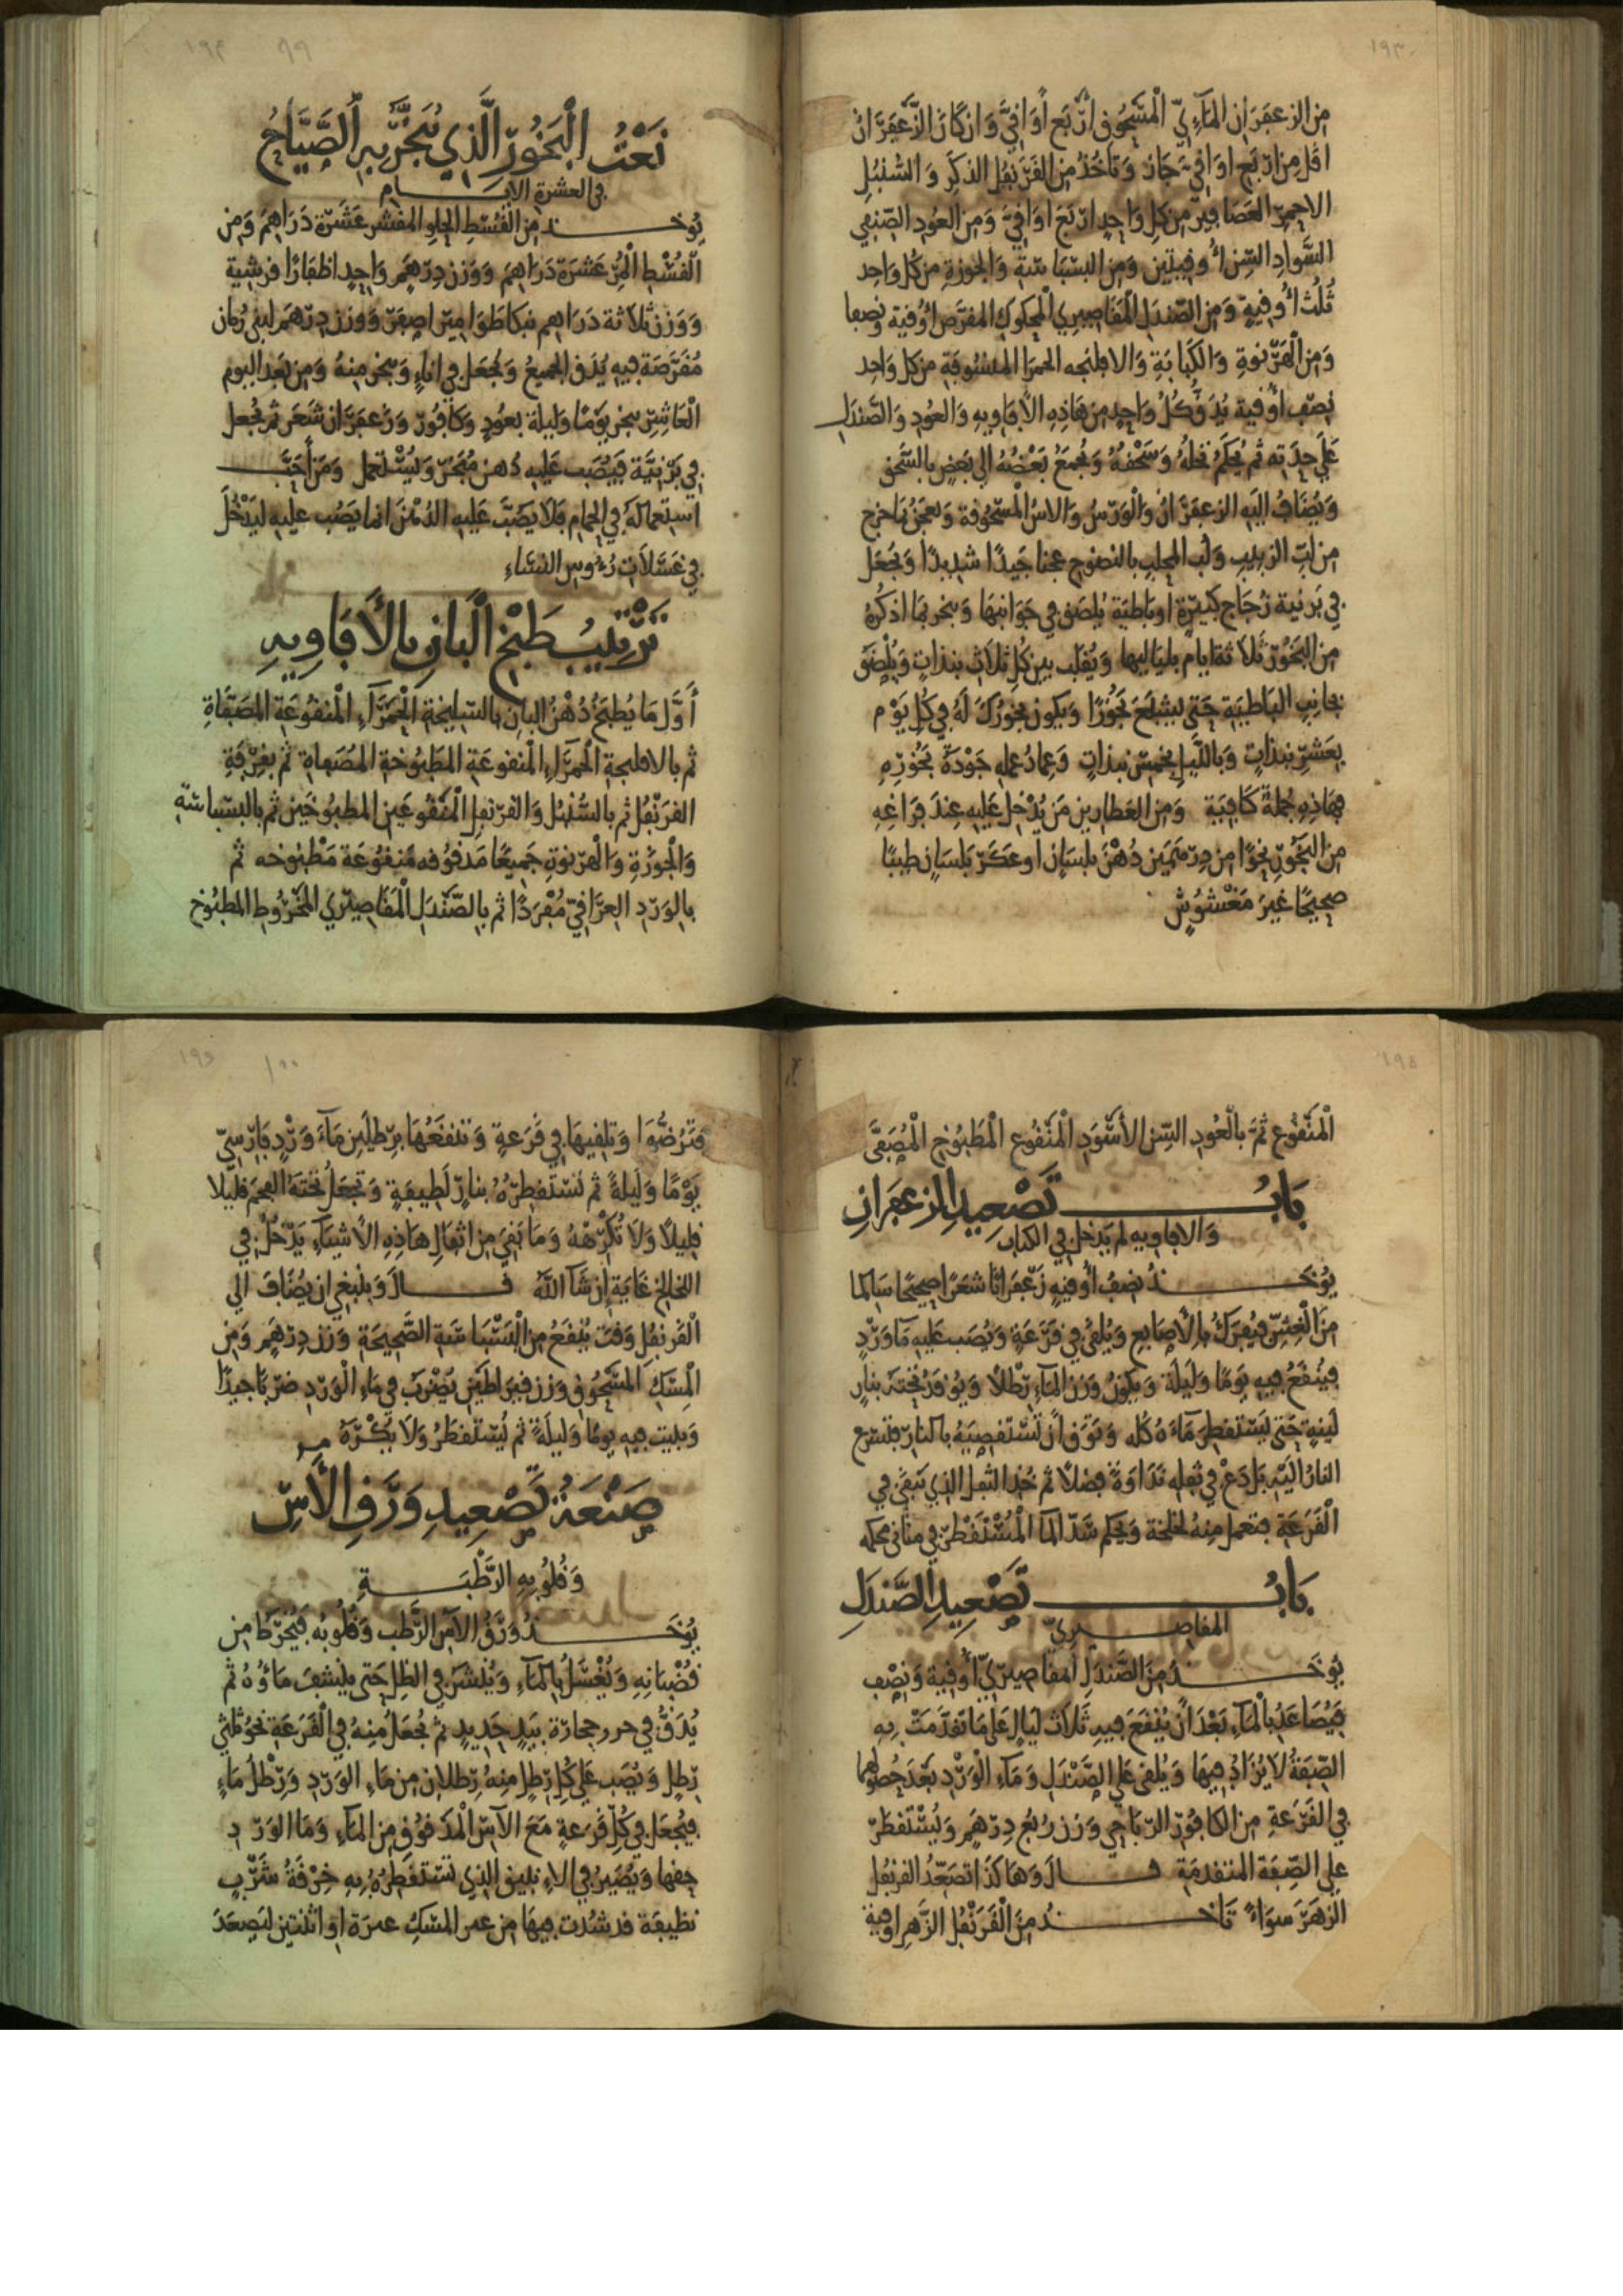 ١٩٣
من الزعفران المآءيّ المسحوق أربع أواقيّ وان كان الزعفران
اقل من اربع اواقي جاز وتاخذ من القرنفل الذكر والسنبل
الاحمر العصافير من كل واحد اربع اواقي ومن العود الصنفي
السواد السن أوقيتين ومن البسباسة والجوزة من كل واحد
ثلث أوقية ومن الصندل المقاصيري المحكوك المقرص أوقية ونصفا
ومن الهرنوة والكبابة والافلنجه الحمرا المنسوفة من كل واحد
نصف أوقية يدق كل واحد من هاذه الافاويه والعود والصندل
على حدته ثم يحكم نخله وسحقه ويجمع بعضه الى بعض بالسحق
ويضاف اليه الزعفران والورس والاس المسحوقة ويعجن بما خرج
من لب الزبيب ولب المحلب بالنضوح عجنا جيدًا شديدًا ويجعل
في برنية زجاج كبيرة او باطية يلصق في جوانبها ويبخر بما اذكره
من البخور ثلاثة ايام بلياليها ويقلب بين كل ثلاث بندات ويلصق
بجانب الباطية حتى يشبع بخورًا ويكون بخورك له في كل يوم
بعشر ندات وبالليل بخمس ندات وعماد عمله جودة بخوره
فهاذه جملة كافية ومن العطارين من يدخل عليه عند فراغه
من البخور نحوًا من درهمين دهن بلسان او عكر بلسان طيبًا
صحيحًا غير مغشوش
١٩٤ ٩٩
نعت البخور الذي يبخر به الصياح
في العشرة الايام
يوخذ من القسط الحلو المقشر عشرة دراهم ومن
القسط المر عشرة دراهم ووزن درهم واحد اظفارًا قرشية
ووزن ثلاثة دراهم ووزن درهم لبنى رمان
مقرصة فيه يدق الجميع ويجعل في اناء ويبخر منه ومن بعد اليوم
العاشر يبخر يومًا وليلة بعود وكافور وزعفران شعر ثم يجعل
في برنية فيصب عليه دهن مبخر ويستعمل ومن أحب
استعماله في الحمام فلا يصب عليه الدهن انما يصب عليه ليدخل
في غسلات رؤوس النساء
ترتيب طبخ البان بالأفاويه
أول ما يطبخ دهن البان بالسليخة الحمرآء المنقوعة المصفاة
ثم بالافلنجة الحمراء المنقوعة المطبوخة المصفاة ثم بقرفة
القرنفل ثم بالسنبل والقرنفل المنقوعين المطبوخين ثم بالبسباسة
والجوزة والهرنوة جميعًا مدقوقه منقوعة مطبوخه ثم
بالورد العراقي مفردًا ثم بالصندل المقاصيري المخروط المطبوخ
١٩٥
المنقوع ثم بالعود السن الأسود المنقوع المطبوخ المصفى
باب تصعيد الزعفران
والافاويه لم يدخل في الكتاب
يوخذ نصف أوقيه زعفرانًا شعرًا صحيحًا سالما
من الغش فيفرك بالأصابع ويلقى في قرعة ويصب عليه ماورد
فينقع فيه يومًا وليلة ويكون وزن المآء رطلاً ويوقد تحته بنار
لينه حتى يستقطر مآءه كله وتوق أن تستقصيه بالنار فتسرع
النار اليه بل دع في ثفله نداوة فضلاً ثم خذ الثفل الذي تبقى في
القرعة فتعمل منه لخلخة ويحكم شد الما المستقطر في مثانى محكمه
باب تصعيد الصندل
المقاصيري
يوخذ من الصندل المقاصيري أوقية ونصف
فيصاعد بالماء بعد أن ينقع فيه ثلاث ليال على ما تقدمت به
الصفة لا يزاد فيها ويلقى على الصندل ومآء الورد بعد حصولهما
في القرعة من الكافور الرباحي وزن ربع درهم ويستقطر
على الصفة المتقدمة قال وهاكذا تصعد القرنفل
الزهر سواءً تاخذ من القرنفل الزهر اوقية
١٩٦ ١٠٠
فترضها وتلقيها في قرعة وتنقعها برطلين مآء ورد فارسيّ
يومًا وليلةً ثم تستقطره بنار لطيفة وتجعل تحته الفحم قليلا
قليلاً ولا تكرهه وما بقي من اثفال هاذه الاشياء يدخل في
اللخالخ غاية إن شآ الله قال وينبغي ان يضاف الى
القرنفل وقت ينقع من البسباسة الصحيحة وزن درهم ومن
المسك المسحوق وزن قيراطين يضرب في ماء الورد ضربًا جيدًا
ويبيت فيه يومًا وليلةً ثم يستقطر ولا يكره
صنعة تصعيد ورق الآس
وقلوبه الرطبة
يوخذ ورق الآس الرطب وقلوبه فيخرط من
قضبانه ويغسل بالماء وينشر في الظل حتى ينشف ماؤه ثم
يدق في حجارة بيد حديد ثم يجعل منه في القرعة نحو ثلثي
رطل ويصب على كل رطل منه رطلان من ماء الورد ورطل ماء
فيجعل في كل قرعة مع الآس المدقوق من الماء وما الورد
حقها ويصير في الانبيق الذي تستقطره به خرقة شرب
نظيفة قد شددت فيها من عمر المسك عمرة او اثنتين ليصعد